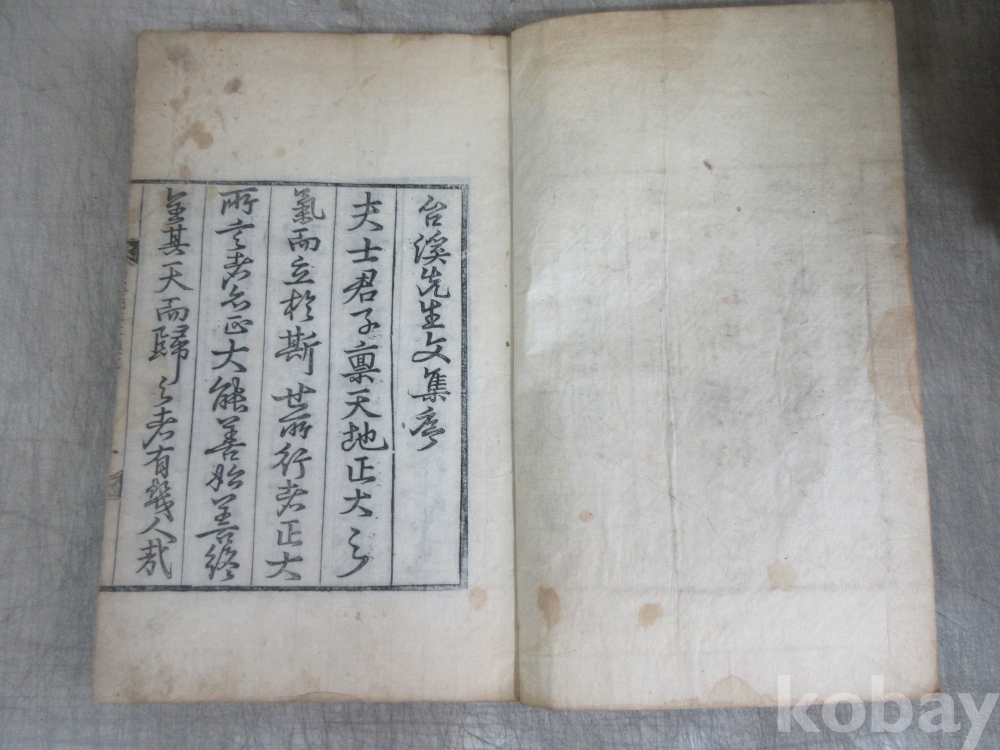 台溪先生文集序
夫士君子禀天地正大之
氣而立於斯世所行者正大
所言者亦正大能善始善終
全其天而歸之者有幾人哉
kobay